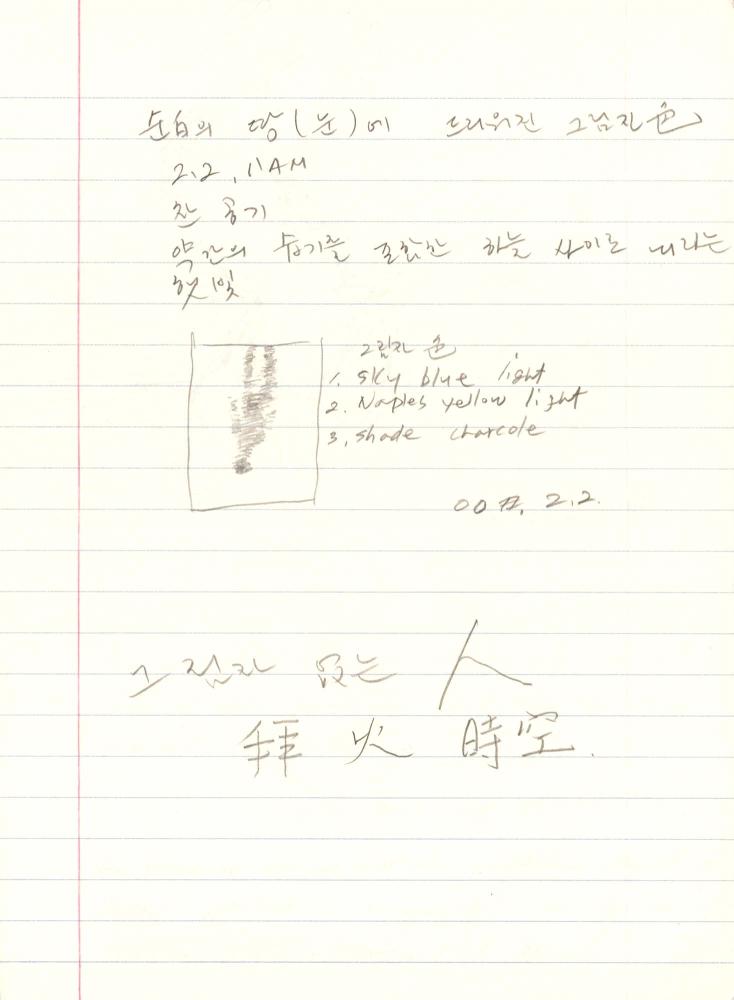 순白의 땅(눈)에 드리워진 그림자 色
2.2, 11AM
찬 공기
약간의 습기를 포함한 하늘 사이로 내리는
햇빛
그림자 色
1. sky blue light
2. Naples yellow light
3. shade charcole
00 2.2.
그림자 없는 人
拜火 時空.